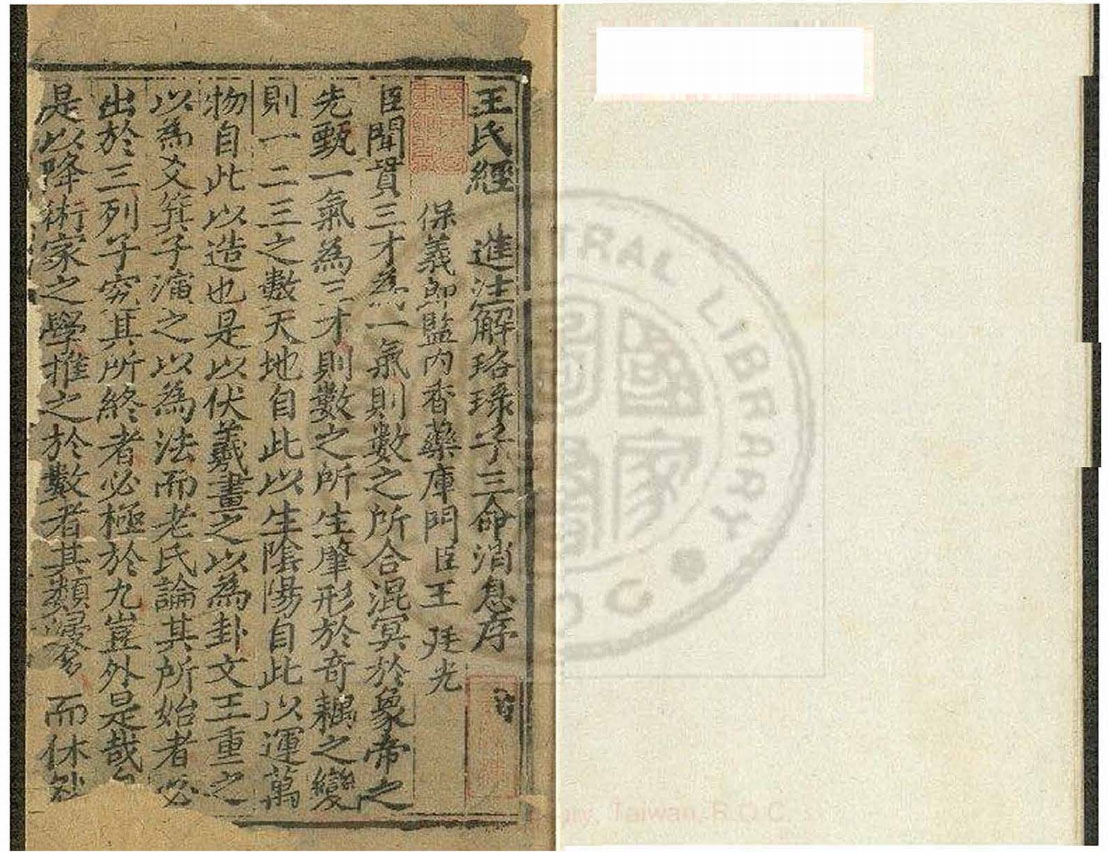 王氏經 進注解珞琭子三命消息序
保義郎監內香藥庫門臣王廷光
臣聞貫三才為一氣則數之所合混冥於象帝之
先甄一氣為三才則數之所生肇形於奇耦之變
則一二三之數天地自此以生陰陽自此以運萬
物自此以造也是以伏羲畫之以為卦文王重之
以為爻箕子演之以為法而老氏論其所始者必
出於三列子究其所終者必極於九豈外是哉
是以降術家之學推之於數者其類 而休
CENTRAL LIBRARY
R.O.C.
國家圖書
Taiwan, R.O.C.